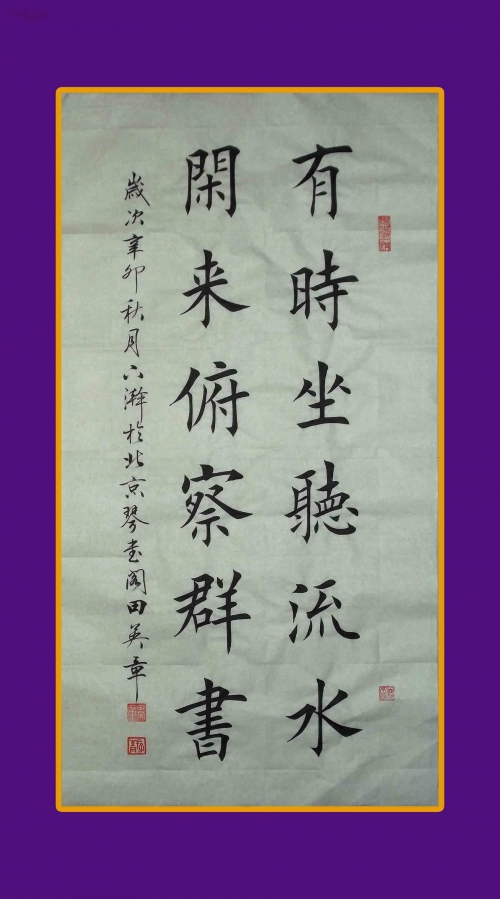 有時坐聽流水
閑来俯察群書
歲次辛卯秋月六澣於北京琴书阁田英章